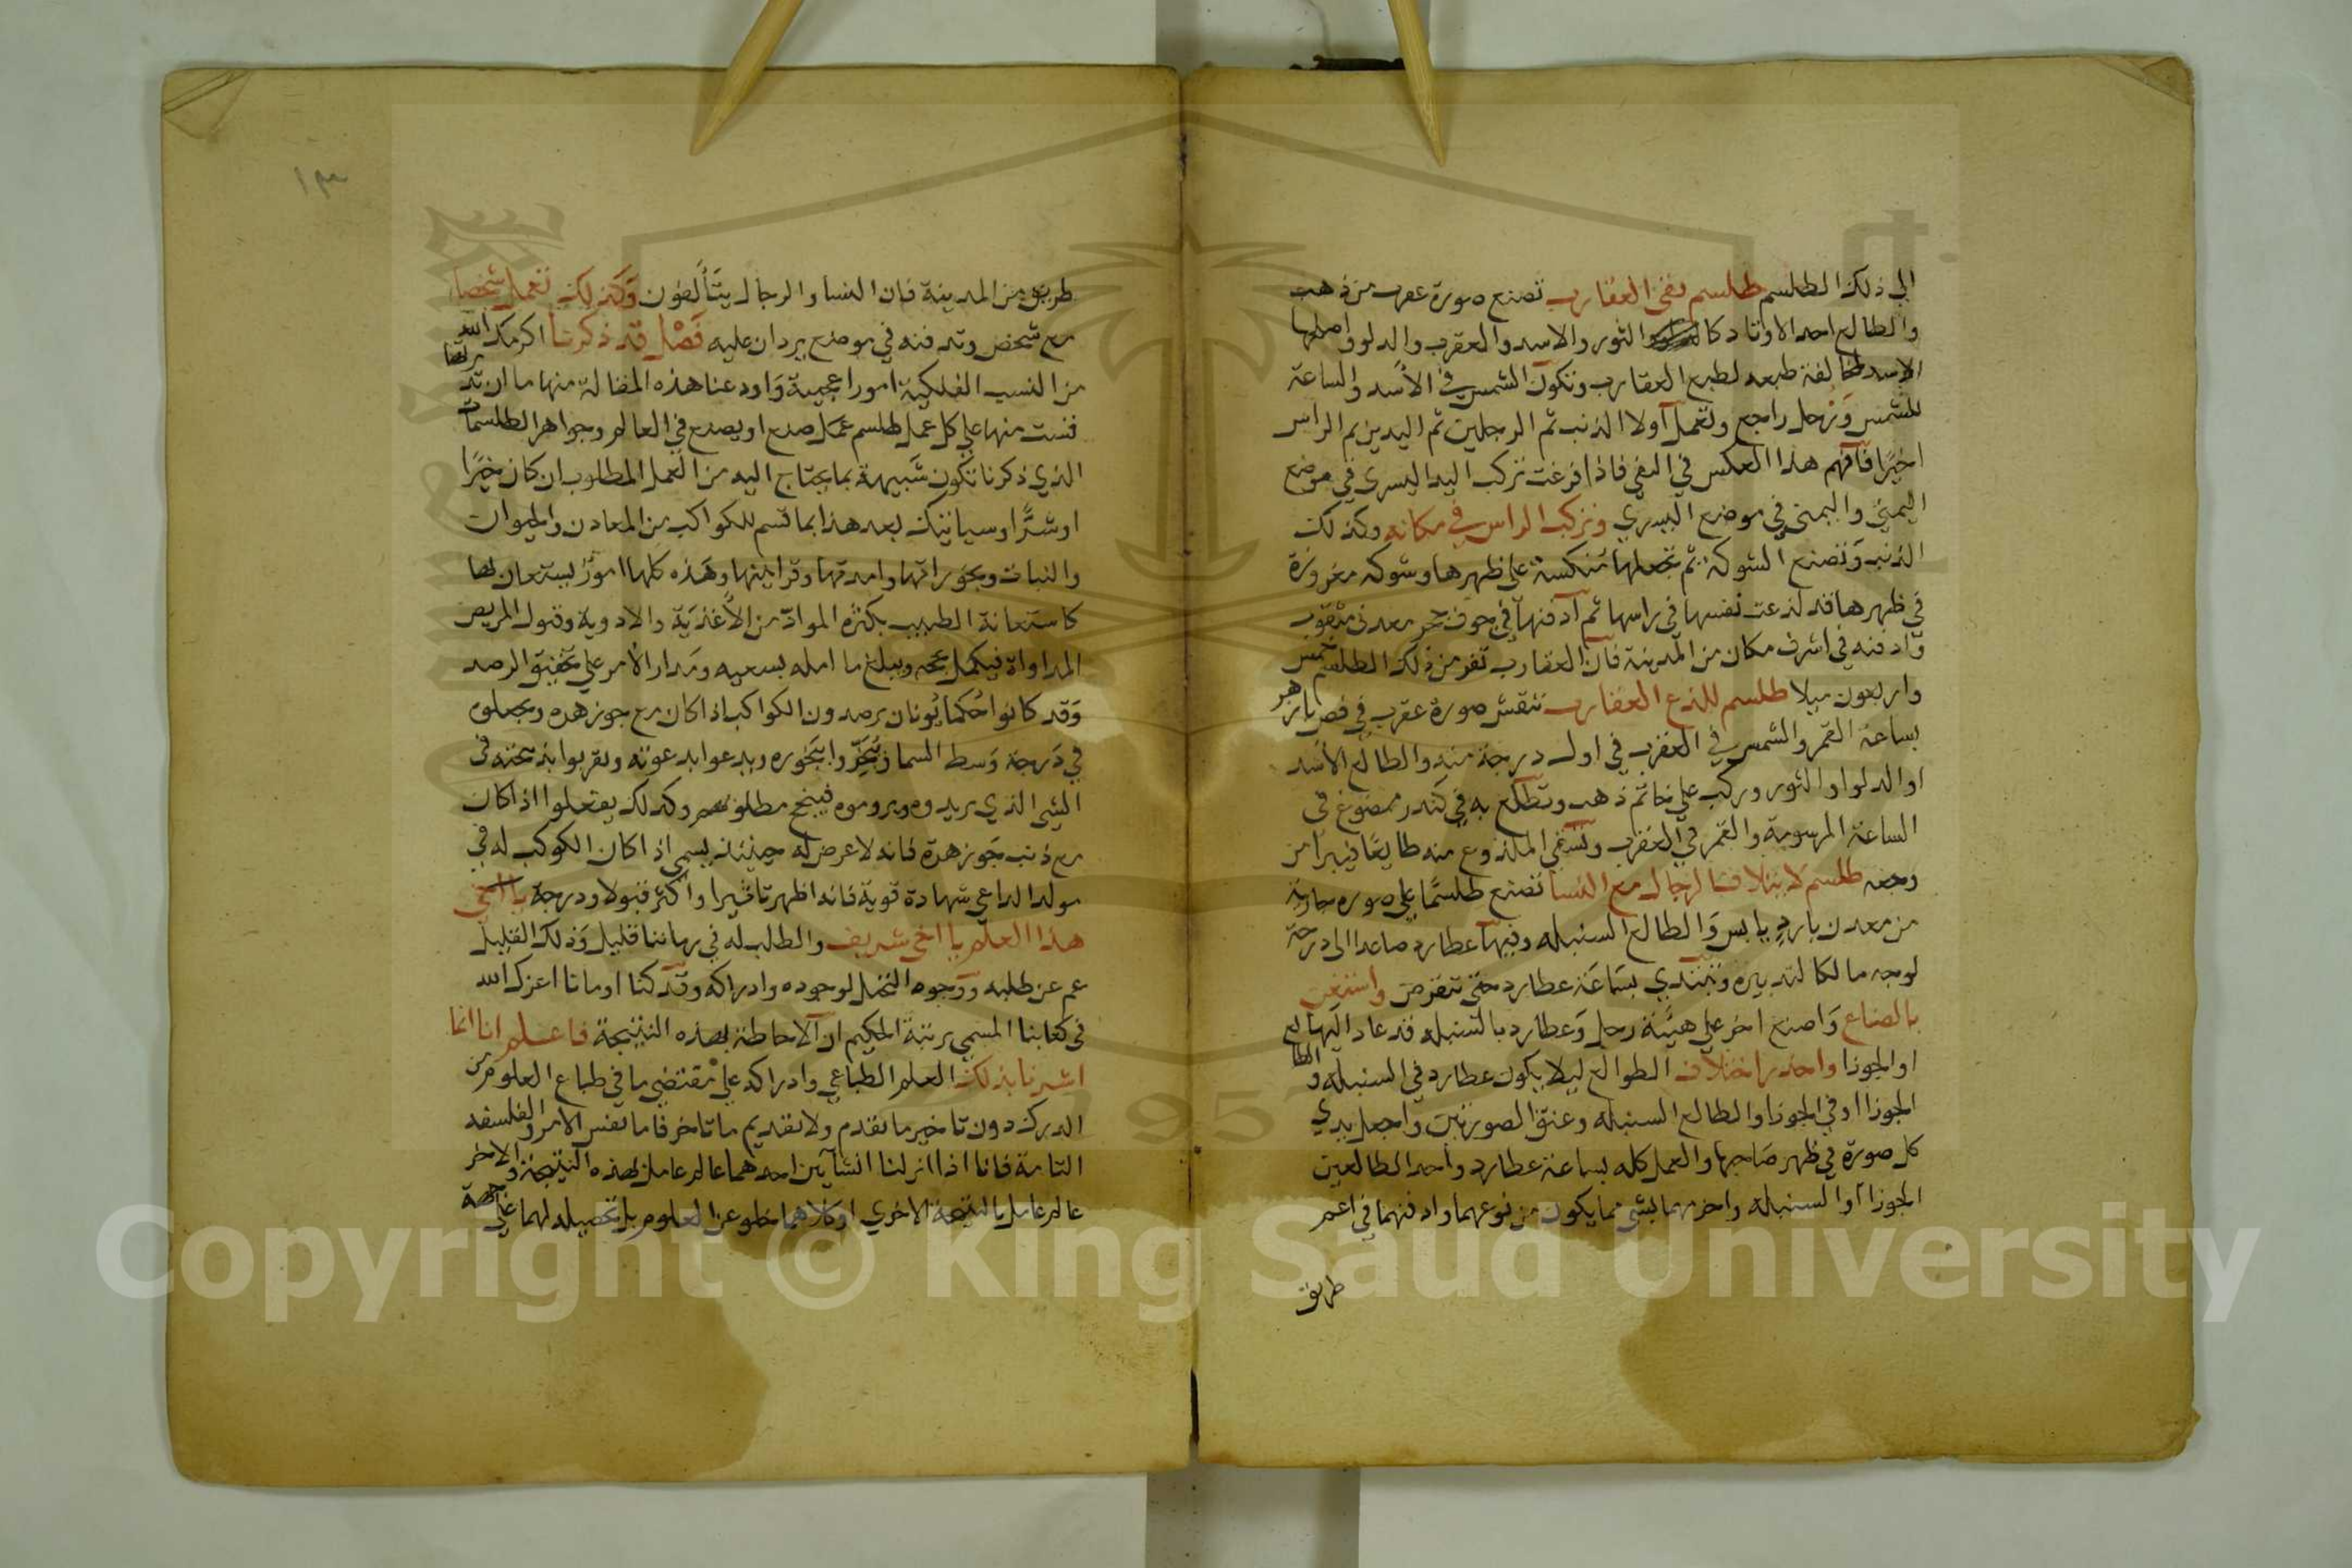 الى ذلك الطلسم طلسم نفي العقارب تصنع صورة عقرب من ذهب
والطالع احد الاوتاد كا الثور والاسد والعقرب والدلو واصلها
الاسد لمخالفة طبعه لطبع العقارب وتكون الشمس في الأسد والساعة
للشمس وزحل راجع وتعمل أولا الذنب ثم الرجلين ثم اليدين ثم الراس
اخيرًا فآفهم هذا العكس في النفي فاذا فرغت تركب اليد اليسرى في موضع
اليمنى واليمنى في موضع اليسرى وتركب الراس في مكانه وكذلك
الذنب وَتصنع الشوكة ثم تجعلها منكسة على ظهرها وشوكه مغروزة
في ظهرها قد لذعت نفسها في راسها ثم آدفنها في جوف حجر معدني مثقوب
وَادفنه في اشرف مكان من المدينة فآن العقارب تفر من ذلك الطلسم خمس
واربعون ميلا طلسم للذع العقارب تنقش صورة عقرب في فص بازهر
بساعة القمر والشمس في العقرب في اول درجة منه والطالع الأسد
او الدلو او الثور وركب على خاتم ذهب وتطبع به في كندر ممضوغ في
الساعة المرسومة والقمر في العقرب وتسقي الملذوع منه طابعًا فيبرا من
وجعه طلسم لايتلاف الرجال مع النسا تصنع طلسمًا على صوره جارية
من معدن بارد يابس وَالطالع السنبله وفيها عطارد صاعدا الى درجة
لوجه مالكا لتدبيره وتبتدي بسَاعَة عطارد حتى تنقرض واستعن
بالصناع وَاصنع اخر على هيئة رجل وَعطارد بالسنبله قد عاد اليها لع
او الجوزا واحذر اختلاف الطوالع ليلا يكون عطارد في السنبله والطا
الجوزا او في الجوزا والطالع السنبله وعنق الصورتين واجعل يدي
كل صورة في ظهر صَاحبها والعمل كله بساعة عطارد واحد الطالعين
الجوزا أو السنبله واخرمهما بشي مما يكون من نوعهما وادفنهما في اعمر
طريق
١٣
طريق من المدينة فان النسا والرجال يتَألفون وَكذلك تعمل شخصا
مع شخص وتدفنه في موضع يردان عليه فَصْل قد ذكرنا اكرمك الله
من النسب الفلكية امورا عجيبة وَاودعنا هذه المقالة منها ما ان تد برتها
قست منها على كل عمل طلسم عمل صنع او يصنع في العالم وجواهر الطلسمات
الذي ذكرنا تكون شَبيهة بما يحتاج اليه من العمل المطلوب ان كان خيرًا
او شرًّا وسياتيك بعد هذا بما قسم للكواكب من المعادن والحيوان
والنبات وبخوراتها وامدتها وقرابينها وَهذه كلها امورٌ يستعان بها
كاستعانة الطبيب بكثره المواد من الأغذيَة والادوية وقبول المريض
المداواة فيكمل بحثه ويبلغ ما امله بسعيه ومَدار الأمر على تحقيق الرصد
وَقد كانوا حُكما يُونان يرصدون الكواكب اذا كان مع جوزهره ويجعلوه
في دَرجة وَسط السما وُيبَخّروا ببَخوره ويدعوا بدعوته ويقربوا بذبحته في
الشي الذي يريدوه ويروموه فينجح مطلوبهم وكذلك يفعلوا اذا كان
مع ذنب جَوزهرة فانه لا عرض له حينئذ يسمى اذا كان الكوكب له في
مولد الداعي شهادة قوية فانه اظهر تاثيرا واكثر قبولا ودرجة يا اخي
هذا العلم يا اخي شريف والطلب له في زماننا قليل وَذلك القليل
عم عن طلبه ووجوه التخيل لوجوده وادراكه وقد كنا اومانا اعزك الله
في كتابنا المسمى برتبة الحكيم ان آلاحاطة بهذه النتيجة فاعلم انا انما
اشرنا بذلك العلم الطباعي وادراكه على مقتضى ما في طباع العلوم من
الدرك دون تاخير ما تقدم ولا تقديم ما تاخر فاما نفس الامر والفلسفه
التامة فانا اذا انزلنا انسَانين احدهما عالم عامل بهذه النتيجة والاخر
عالم عامل بالنتيجة الاخرى او كلاهما خلو عن العلوم بل تحصيله لهما على جهة
Copyright © King Saud University
1957